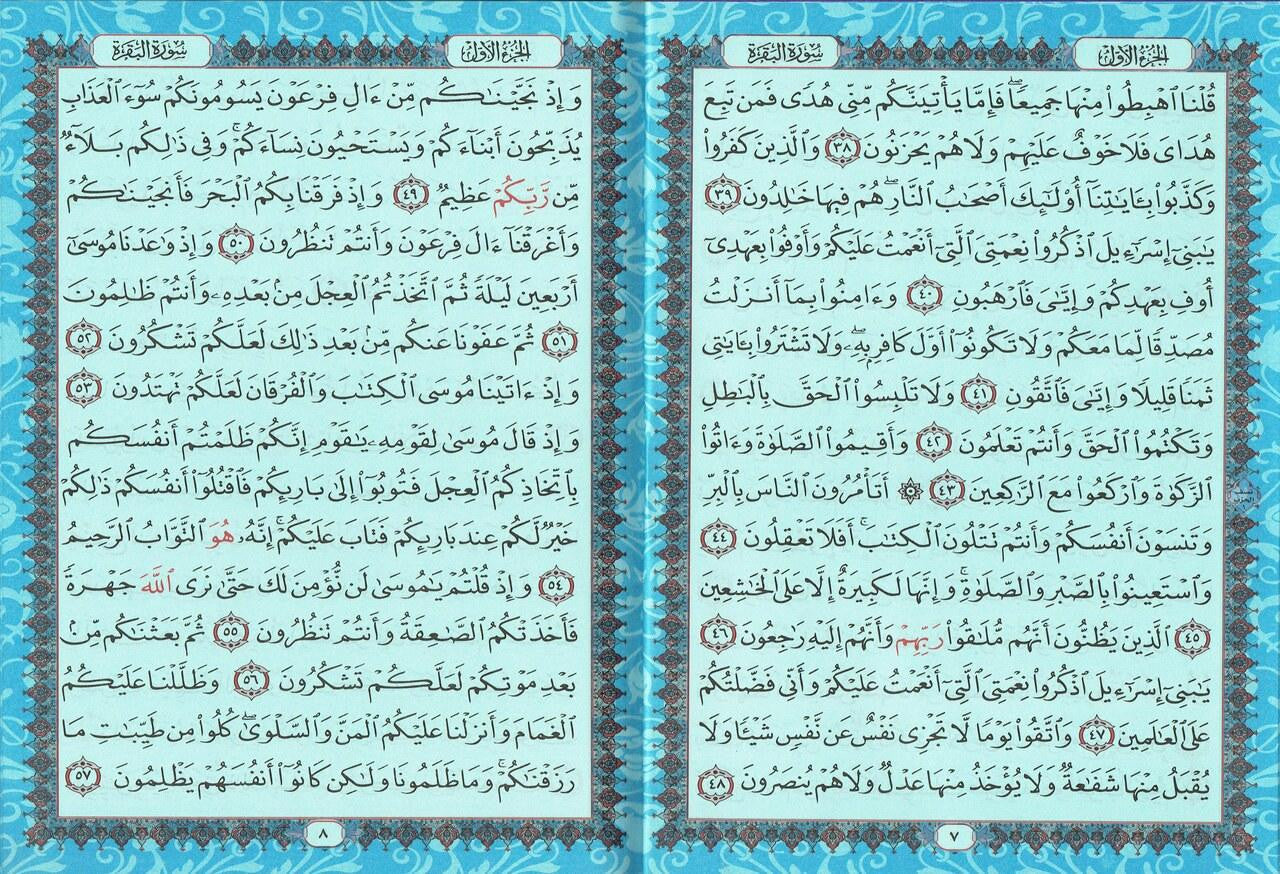 الجزء الأول
سورة البقرة
قُلْنَا ٱهْبِطُوا۟ مِنْهَا جَمِيعًۭا ۖ فَإِمَّا يَأْتِيَنَّكُم مِّنِّى هُدًۭى فَمَن تَبِعَ
هُدَاىَ فَلَا خَوْفٌ عَلَيْهِمْ وَلَا هُمْ يَحْزَنُونَ ٣٨ وَٱلَّذِينَ كَفَرُوا۟
وَكَذَّبُوا۟ بِـَٔايَـٰتِنَآ أُو۟لَـٰٓئِكَ أَصْحَـٰبُ ٱلنَّارِ ۖ هُمْ فِيهَا خَـٰلِدُونَ ٣٩
يَـٰبَنِىٓ إِسْرَٰٓءِيلَ ٱذْكُرُوا۟ نِعْمَتِىَ ٱلَّتِىٓ أَنْعَمْتُ عَلَيْكُمْ وَأَوْفُوا۟ بِعَهْدِىٓ
أُوفِ بِعَهْدِكُمْ وَإِيَّـٰىَ فَٱرْهَبُونِ ٤٠ وَءَامِنُوا۟ بِمَآ أَنزَلْتُ
مُصَدِّقًۭا لِّمَا مَعَكُمْ وَلَا تَكُونُوٓا۟ أَوَّلَ كَافِرٍۭ بِهِۦ ۖ وَلَا تَشْتَرُوا۟ بِـَٔايَـٰتِى
ثَمَنًۭا قَلِيلًۭا وَإِيَّـٰىَ فَٱتَّقُونِ ٤١ وَلَا تَلْبِسُوا۟ ٱلْحَقَّ بِٱلْبَـٰطِلِ
وَتَكْتُمُوا۟ ٱلْحَقَّ وَأَنتُمْ تَعْلَمُونَ ٤٢ وَأَقِيمُوا۟ ٱلصَّلَوٰةَ وَءَاتُوا۟
ٱلزَّكَوٰةَ وَٱرْكَعُوا۟ مَعَ ٱلرَّٰكِعِينَ ٤٣ ۞ أَتَأْمُرُونَ ٱلنَّاسَ بِٱلْبِرِّ
وَتَنسَوْنَ أَنفُسَكُمْ وَأَنتُمْ تَتْلُونَ ٱلْكِتَـٰبَ ۚ أَفَلَا تَعْقِلُونَ ٤٤
وَٱسْتَعِينُوا۟ بِٱلصَّبْرِ وَٱلصَّلَوٰةِ ۚ وَإِنَّهَا لَكَبِيرَةٌ إِلَّا عَلَى ٱلْخَـٰشِعِينَ
٤٥ ٱلَّذِينَ يَظُنُّونَ أَنَّهُم مُّلَـٰقُوا۟ رَبِّهِمْ وَأَنَّهُمْ إِلَيْهِ رَٰجِعُونَ ٤٦
يَـٰبَنِىٓ إِسْرَٰٓءِيلَ ٱذْكُرُوا۟ نِعْمَتِىَ ٱلَّتِىٓ أَنْعَمْتُ عَلَيْكُمْ وَأَنِّى فَضَّلْتُكُمْ
عَلَى ٱلْعَـٰلَمِينَ ٤٧ وَٱتَّقُوا۟ يَوْمًۭا لَّا تَجْزِى نَفْسٌ عَن نَّفْسٍۢ شَيْـًۭٔا وَلَا
يُقْبَلُ مِنْهَا شَفَـٰعَةٌۭ وَلَا يُؤْخَذُ مِنْهَا عَدْلٌۭ وَلَا هُمْ يُنصَرُونَ ٤٨
٧
الجزء الأول
سورة البقرة
وَإِذْ نَجَّيْنَـٰكُم مِّنْ ءَالِ فِرْعَوْنَ يَسُومُونَكُمْ سُوٓءَ ٱلْعَذَابِ
يُذَبِّحُونَ أَبْنَآءَكُمْ وَيَسْتَحْيُونَ نِسَآءَكُمْ ۚ وَفِى ذَٰلِكُم بَلَآءٌۭ
مِّن رَّبِّكُمْ عَظِيمٌۭ ٤٩ وَإِذْ فَرَقْنَا بِكُمُ ٱلْبَحْرَ فَأَنجَيْنَـٰكُمْ
وَأَغْرَقْنَآ ءَالَ فِرْعَوْنَ وَأَنتُمْ تَنظُرُونَ ٥٠ وَإِذْ وَٰعَدْنَا مُوسَىٰٓ
أَرْبَعِينَ لَيْلَةًۭ ثُمَّ ٱتَّخَذْتُمُ ٱلْعِجْلَ مِنۢ بَعْدِهِۦ وَأَنتُمْ ظَـٰلِمُونَ
٥١ ثُمَّ عَفَوْنَا عَنكُم مِّنۢ بَعْدِ ذَٰلِكَ لَعَلَّكُمْ تَشْكُرُونَ ٥٢
وَإِذْ ءَاتَيْنَا مُوسَى ٱلْكِتَـٰبَ وَٱلْفُرْقَانَ لَعَلَّكُمْ تَهْتَدُونَ ٥٣
وَإِذْ قَالَ مُوسَىٰ لِقَوْمِهِۦ يَـٰقَوْمِ إِنَّكُمْ ظَلَمْتُمْ أَنفُسَكُم
بِٱتِّخَاذِكُمُ ٱلْعِجْلَ فَتُوبُوٓا۟ إِلَىٰ بَارِئِكُمْ فَٱقْتُلُوٓا۟ أَنفُسَكُمْ ذَٰلِكُمْ
خَيْرٌۭ لَّكُمْ عِندَ بَارِئِكُمْ فَتَابَ عَلَيْكُمْ ۚ إِنَّهُۥ هُوَ ٱلتَّوَّابُ ٱلرَّحِيمُ
٥٤ وَإِذْ قُلْتُمْ يَـٰمُوسَىٰ لَن نُّؤْمِنَ لَكَ حَتَّىٰ نَرَى ٱللَّهَ جَهْرَةًۭ
فَأَخَذَتْكُمُ ٱلصَّـٰعِقَةُ وَأَنتُمْ تَنظُرُونَ ٥٥ ثُمَّ بَعَثْنَـٰكُم مِّنۢ
بَعْدِ مَوْتِكُمْ لَعَلَّكُمْ تَشْكُرُونَ ٥٦ وَظَلَّلْنَا عَلَيْكُمُ
ٱلْغَمَامَ وَأَنزَلْنَا عَلَيْكُمُ ٱلْمَنَّ وَٱلسَّلْوَىٰ ۖ كُلُوا۟ مِن طَيِّبَـٰتِ مَا
رَزَقْنَـٰكُمْ ۖ وَمَا ظَلَمُونَا وَلَـٰكِن كَانُوٓا۟ أَنفُسَهُمْ يَظْلِمُونَ ٥٧
٨